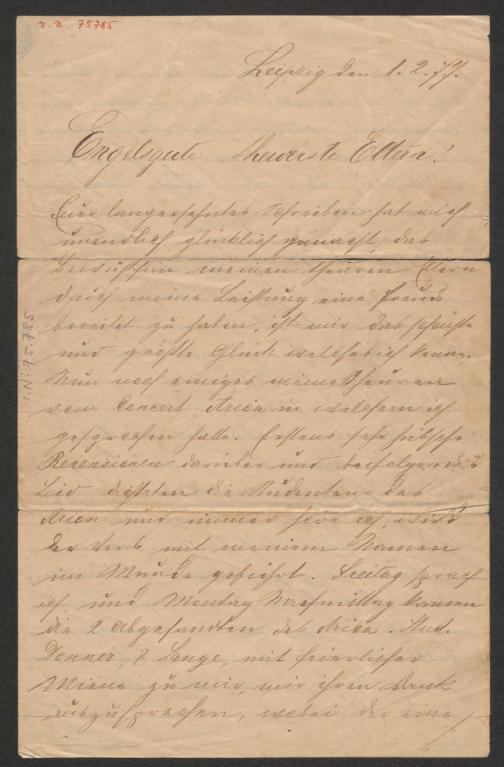 I. N. 75785
Leipzig den 1. 2. 77.
Engelsgute theuerste Eltern!
Euer langersehntes Schreiben hat mich
unendlich glücklich gemacht, das
Bewußtsein meinen theuren Eltern
durch meine Leistung eine Freude
bereitet zu haben, ist mir das schönste
und größte Glück welches ich kenne.
Nun noch einiges meine Theuren
vom Concert Arion in welchem ich
gesprochen habe. Erstens sehr hübsche
Rezensionen darüber und beifolgendes
Lied dichteten die Studenten des
Arion und immer höre ich, wird
der Vers mit meinem Namen
im Munde geführt. Freitag sprach
ich und Montag Nachmittag kamen
die 2 Abgesandten des Arion. Stud.
Donner, & Lange, mit feierlicher
Miene zu mir, mir ihren Dank
auszusprechen, wobei der eine
I.N. 75.785